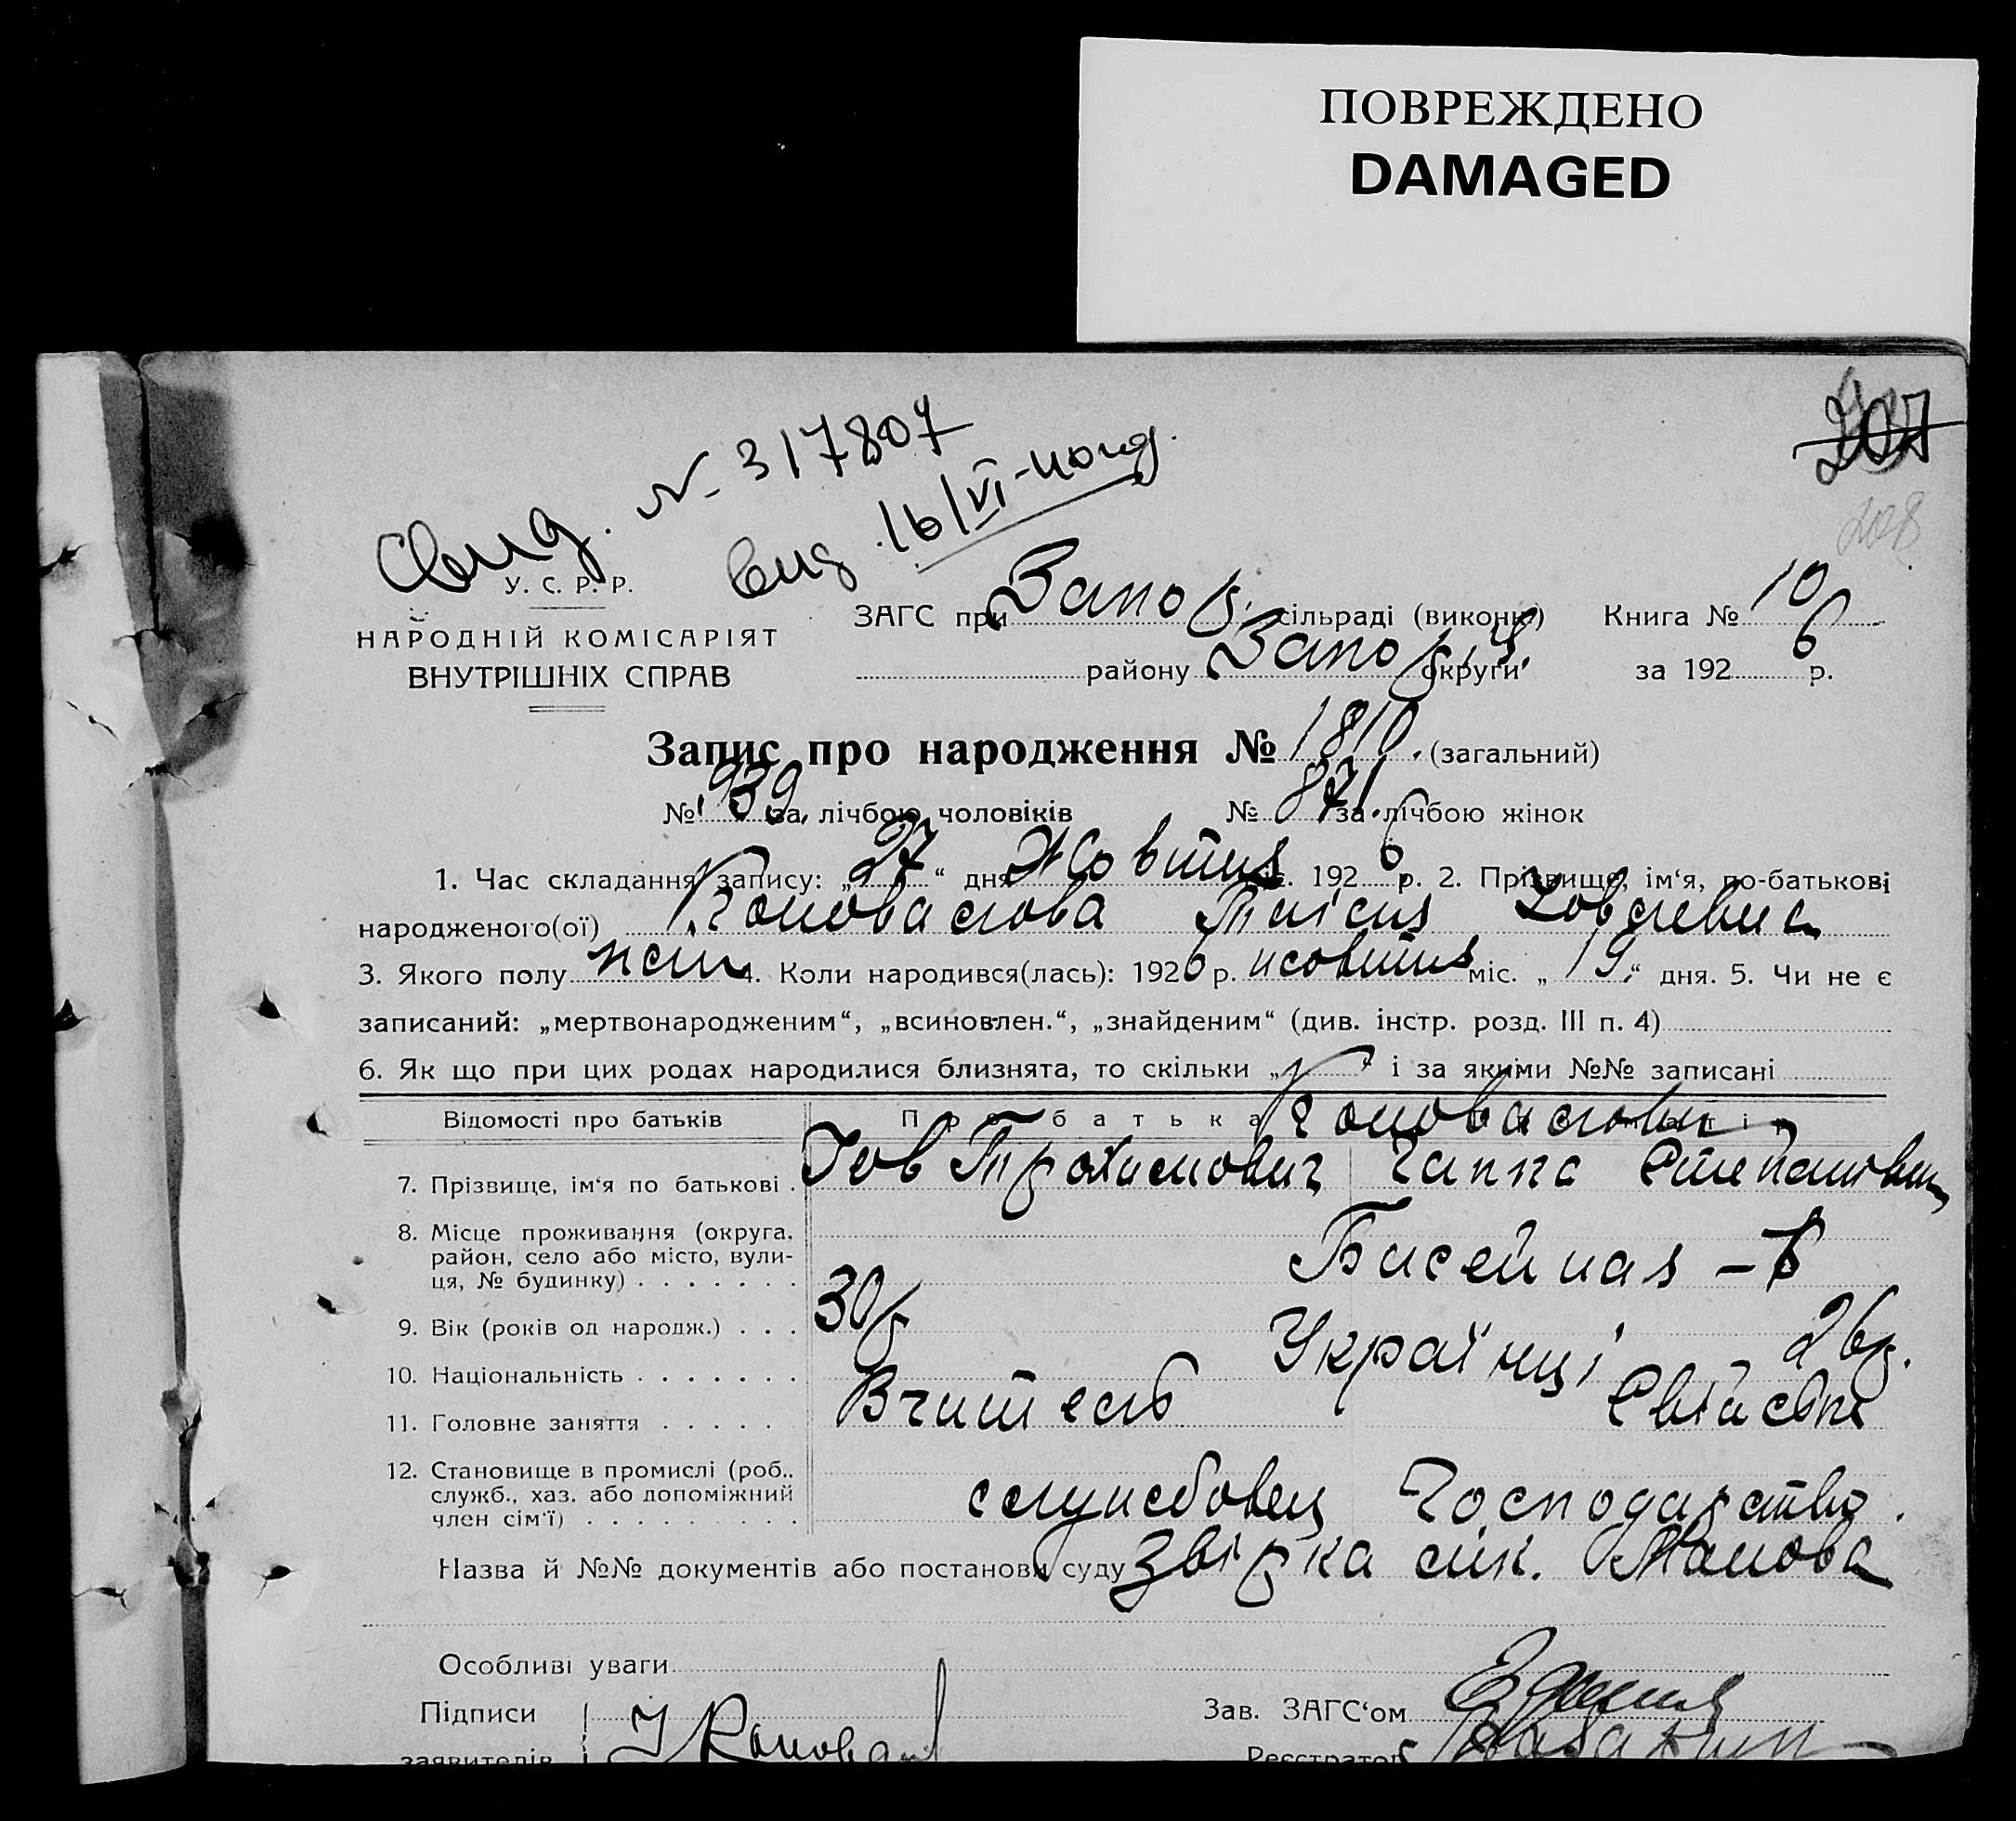 ПОВРЕЖДЕНО
DAMAGED
207
208
Свид. N- 317807
16/VI
У. С. Р. Р.
НАРОДНІЙ КОМІСАРІЯТ
ВНУТРІШНІХ СПРАВ
ЗАГС при Запор. сільраді (виконк) Книга № 10
району Запор. округи за 1926 р.
Запис про народження № 1810. (загальний)
№ 939 за лічбою чоловіків № 871 за лічбою жінок
1. Час складання запису: „27“ дня Жовтня 1926 р. 2. Прізвище, ім‘я, по-батькові
народженого(ої) Коновалова Таісия
3. Якого полу жін 4. Коли народився(лась): 1926 р. жовтня міс. „19“ дня. 5. Чи не є
записаний: „мертвонародженим“, „всиновлен.“, „знайденим“ (див. інстр. розд. III п. 4)
6. Як що при цих родах народилися близнята, то скільки „ “ і за якими №№ записані
Відомості про батьків Про батька Коновалови
7. Прізвище, ім‘я по батькові . Іов Трохимович Ганна Степановна
8. Місце проживання (округа, район, село або місто, вулиця, № будинку) . . . . . . . Бисейная –
9. Вік (років од народж.) . . . 30 р 26 р.
10. Національність . . . . . . . Українці
11. Головне заняття . . . . . Вчитель Сатське
12. Становище в промислі (роб., служб., хаз. або допоміжний член сім‘ї) . . . . . . . . . службовец Господарство.
Назва й №№ документів або постанови суду Звірка лік. Манова
Особливі уваги
Підписи Зав. ЗАГС‘ом
заявителів І Коновал Реєстратор